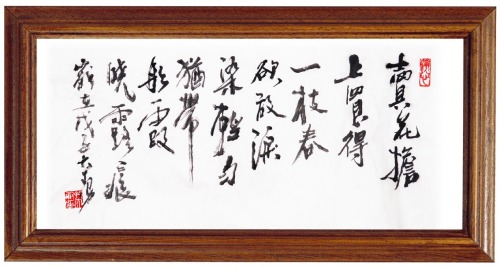 賣花擔
上買得
一枝春
欲放淚
染輕勻
猶帶
彤霞
曉露痕
歲在戊子